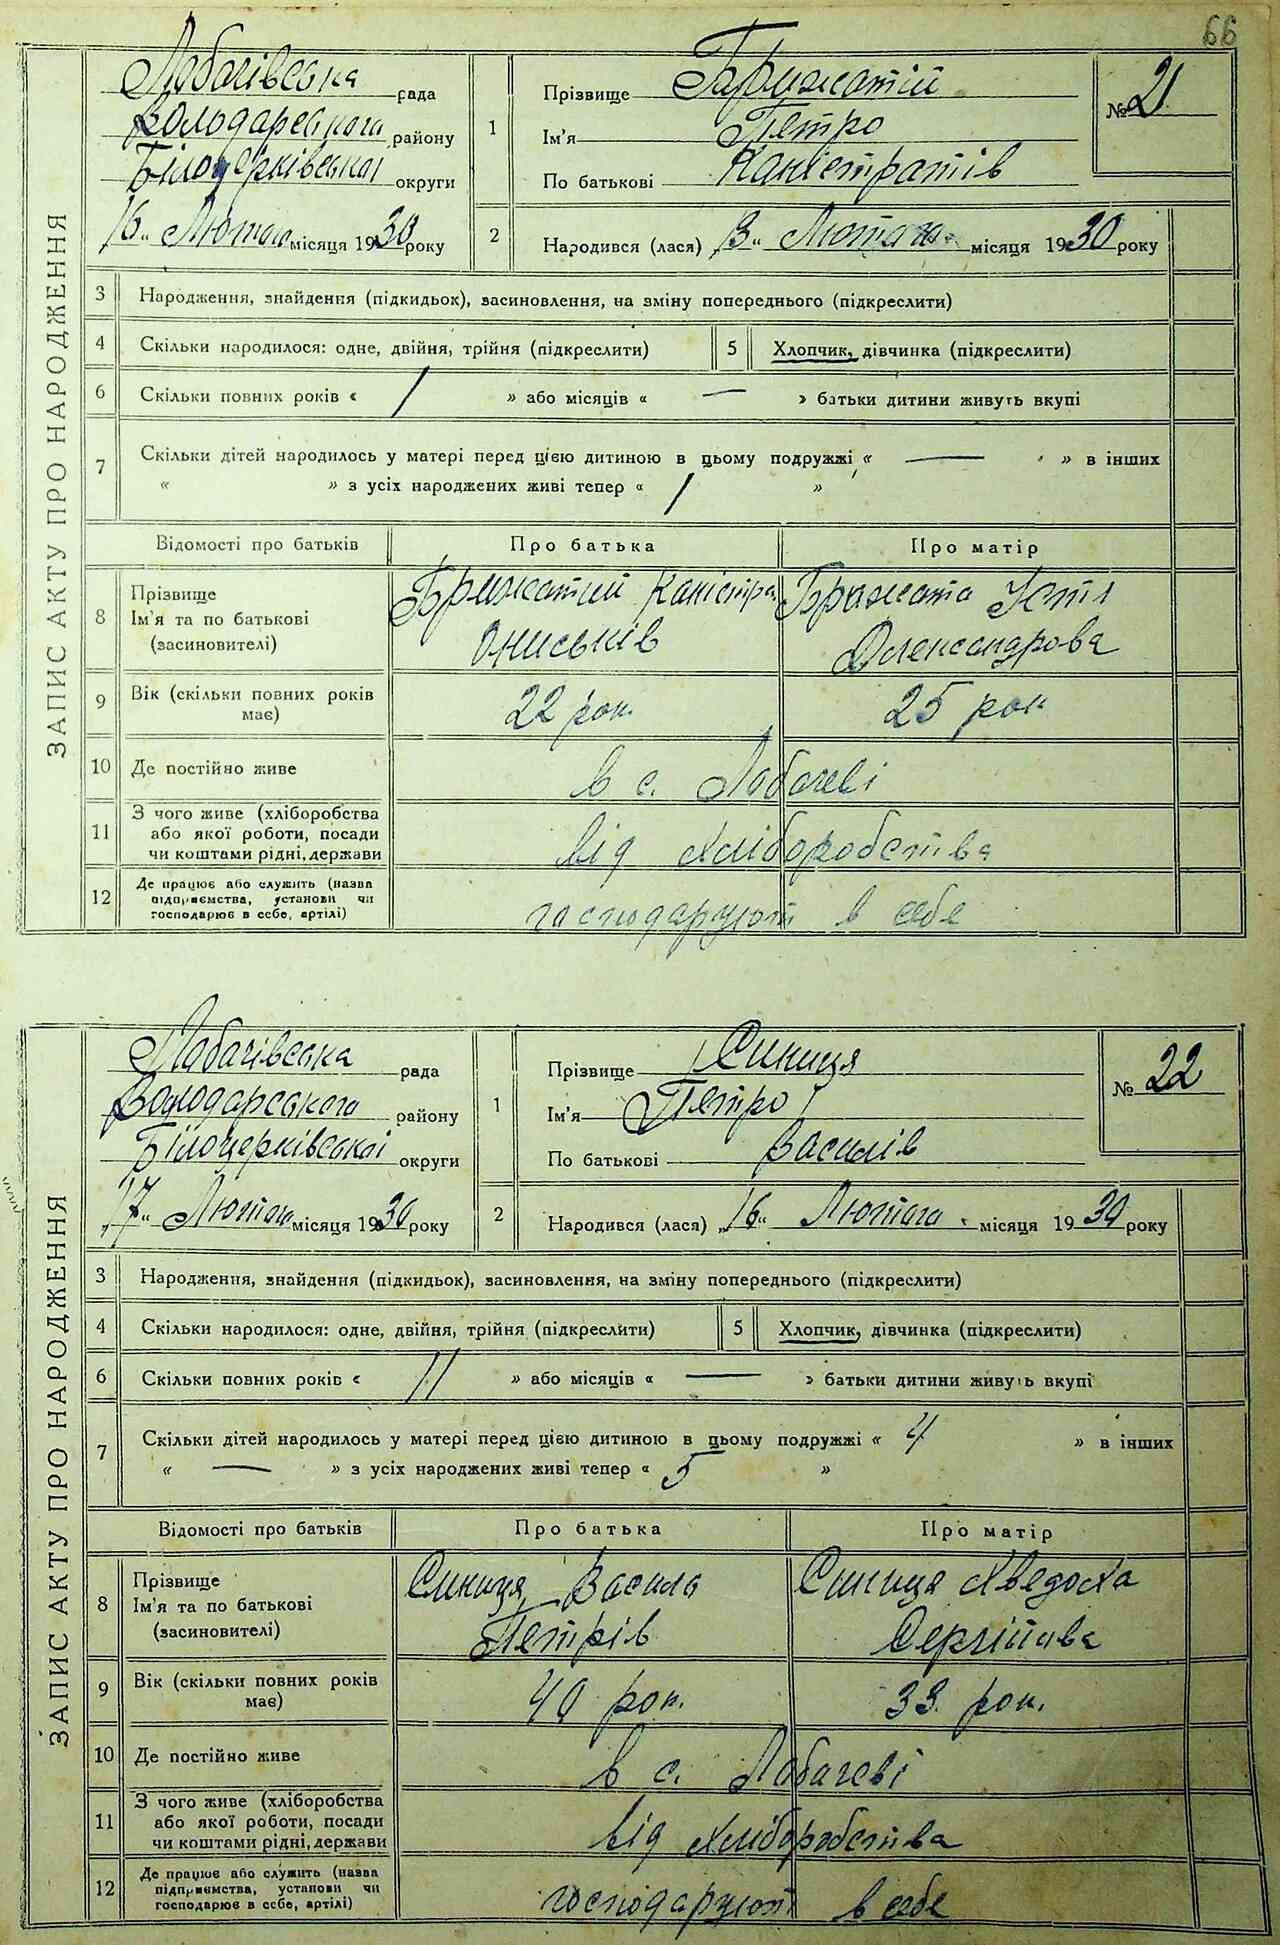 66
ЗАПИС АКТУ ПРО НАРОДЖЕННЯ
Лобачівська рада
Володарського району
Білоцерківської округи
16 „ Лютого місяця 1930 року
1 Прізвище Бружатий
Ім'я Петро
По батькові Каністратів
№ 21
2 Народився (лася) „13„ Лютого місяця 1930 року
3 Народження, знайдення (підкидьок), засиновлення, на зміну попереднього (підкреслити)
4 Скільки народилося: одне, двійня, трійня (підкреслити) 5 Хлопчик, дівчинка (підкреслити)
6 Скільки повних років « 1 » або місяців « — » батьки дитини живуть вкупі
7 Скільки дітей народилось у матері перед цією дитиною в цьому подружжі « — » в інших
« » з усіх народжених живі тепер « 1 »
Відомості про батьків Про батька Про матір
8 Прізвище
Ім'я та по батькові
(засновителі)
Бружатий Каністра
Ониськів
Бружата Устя
Олександрова
9 Вік (скільки повних років має) 22 рок. 25 рок
10 Де постійно живе в с. Лобачеві
11 З чого живе (хліборобства
або якої роботи, посади
чи коштами рідні, держави
від хліборобства
12 Де працює або служить (назва
підприємства, установи чи
господарює в себе, артілі)
господарюют в себе
ЗАПИС АКТУ ПРО НАРОДЖЕННЯ
Лобачівська рада
Володарського району
Білоцерківської округи
„17„ Лютого місяця 1930 року
1 Прізвище Синиця
Ім'я Петро
По батькові Василів
№ 22
2 Народився (лася) „16„ Лютого місяця 1930 року
3 Народження, знайдення (підкидьок), засиновлення, на зміну попереднього (підкреслити)
4 Скільки народилося: одне, двійня, трійня (підкреслити) 5 Хлопчик, дівчинка (підкреслити)
6 Скільки повних років « 11 » або місяців « — » батьки дитини живуть вкупі
7 Скільки дітей народилось у матері перед цією дитиною в цьому подружжі « 4 » в інших
« — » з усіх народжених живі тепер « 5 »
Відомості про батьків Про батька Про матір
8 Прізвище
Ім'я та по батькові
(засиновителі)
Синиця Василь
Петрів
Синиця Хведоха
Сергіїова
9 Вік (скільки повних років має) 40 рок. 33 рок.
10 Де постійно живе в с. Лобачеві
11 З чого живе (хліборобства
або якої роботи, посади
чи коштами рідні, держави
від хліборобства
12 Де працює або служить (назва
підприємства, установи чи
господарює в себе, артілі)
господарюют в себе